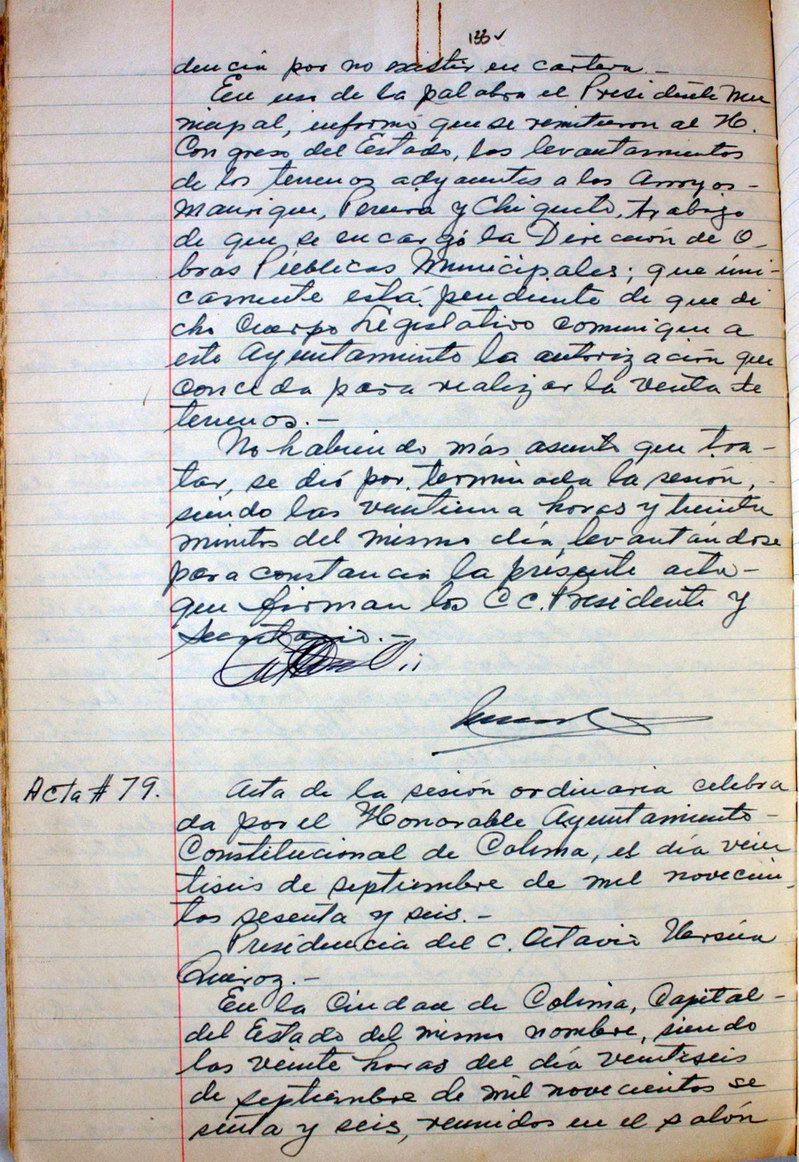 133 ✓
dencia por no existir en cartera.-
En uso de la palabra el Presidente Mu
nicipal, informó que se remitieron al H.
Congreso del Estado, los levantamientos
de los terrenos adyacentes a los Arroyos-
Manrique, Pereira y Chiquito, trabajo
de que se encargó la Dirección de O-
bras Públicas Municipales; que úni-
camente está pendiente de que di
cho Cuerpo Legislativo comunique a
este Ayuntamiento la autorización que
conceda para realizar la venta de
terrenos.-
No habiendo más asunto que tra-
tar, se dió por terminada la sesión,
siendo las veintiuna horas y treinta
minutos del mismo día, levantándose
para constancia la presente acta-
que firman los CC. Presidente y
Secretario.-
Acta # 79.
Acta de la sesión ordinaria celebra
da por el Honorable Ayuntamiento-
Constitucional de Colima, el día vein
tiseis de septiembre de mil novecien-
tos sesenta y seis.-
Presidencia del C. Octavio
Quiroz.-
En la Ciudad de Colima, Capital-
del Estado del mismo nombre, siendo
las veinte horas del día veintiseis
de septiembre de mil novecientos se
senta y seis, reunidos en el salón